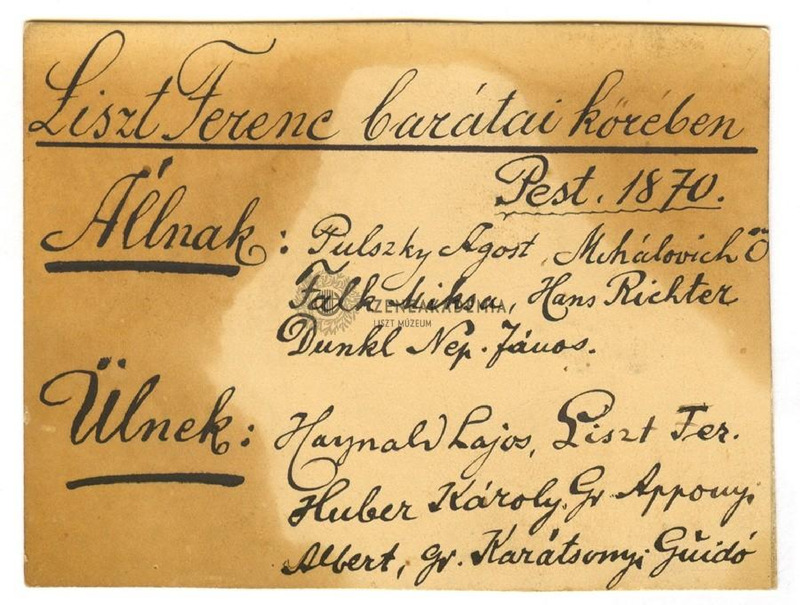 Liszt Ferenc barátai körében
Pest. 1870.
Állnak: Pulszky Agost, Mihálovich Ö
Falk Miksa, Hans Richter
ZENEAKADÉMIA
LISZT MÚZEUM
Dunkl Nep. János.
Ülnek: Haynald Lajos, Liszt Fer.
Huber Károly, Gr Apponyi
Albert, gr. Karátsonyi Guidó